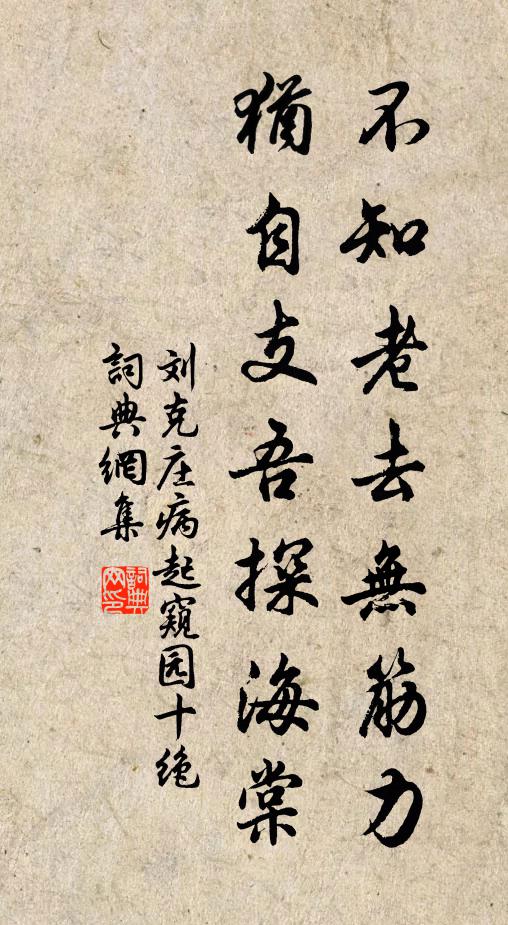 不知老去無筋力
猶自支吾探海棠
刘克庄病起窺园十绝
詞典網集
詞典网印